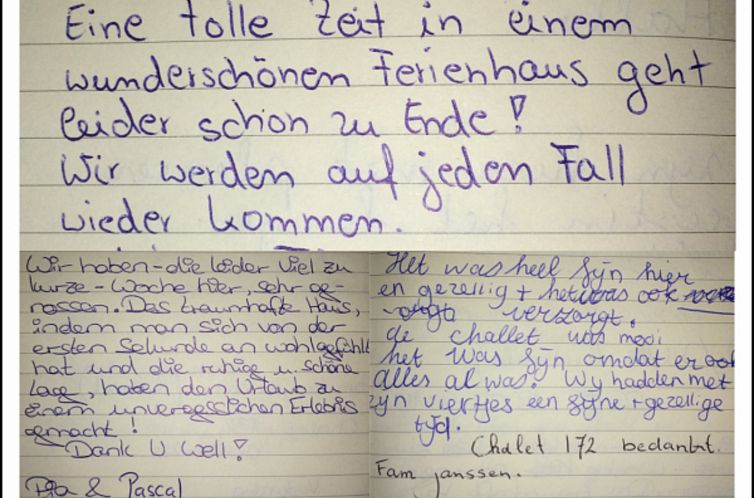 Eine tolle Zeit in einem
wunderschönen Ferienhaus geht
leider schon zu Ende!
Wir werden auf jeden Fall
wieder kommen.
Wir haben - die leider viel zu
kurze - Woche hier, sehr ge-
nossen. Das traumhafte Haus,
indem man sich von der
ersten Sekunde an wohlgefühlt
hat und die ruhige u. schöne
Lage, haben den Urlaub zu
einem unvergesslichen Erlebnis
gemacht!
Dank U Well!
& Pascal
Het was heel fijn hier
en gezellig + het was ook
verzorgt.
de challet was mooi
het was fijn omdat er ook
alles al was. Wy hadden met
zyn viertjes een fijne + gezellige
tyd.
Chalet 172 bedankt.
Fam janssen.